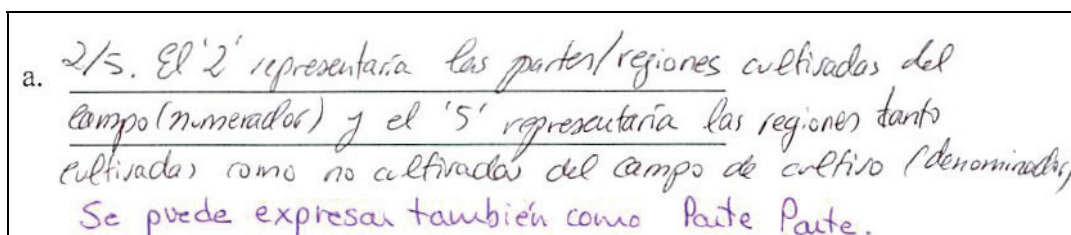 a. 2/5. El '2' representaría las partes/regiones cultivadas del
campo (numerador) y el '5' representaría las regiones tanto
cultivadas como no cultivadas del campo de cultivo (denominador)
Se puede expresar también como Parte Parte.